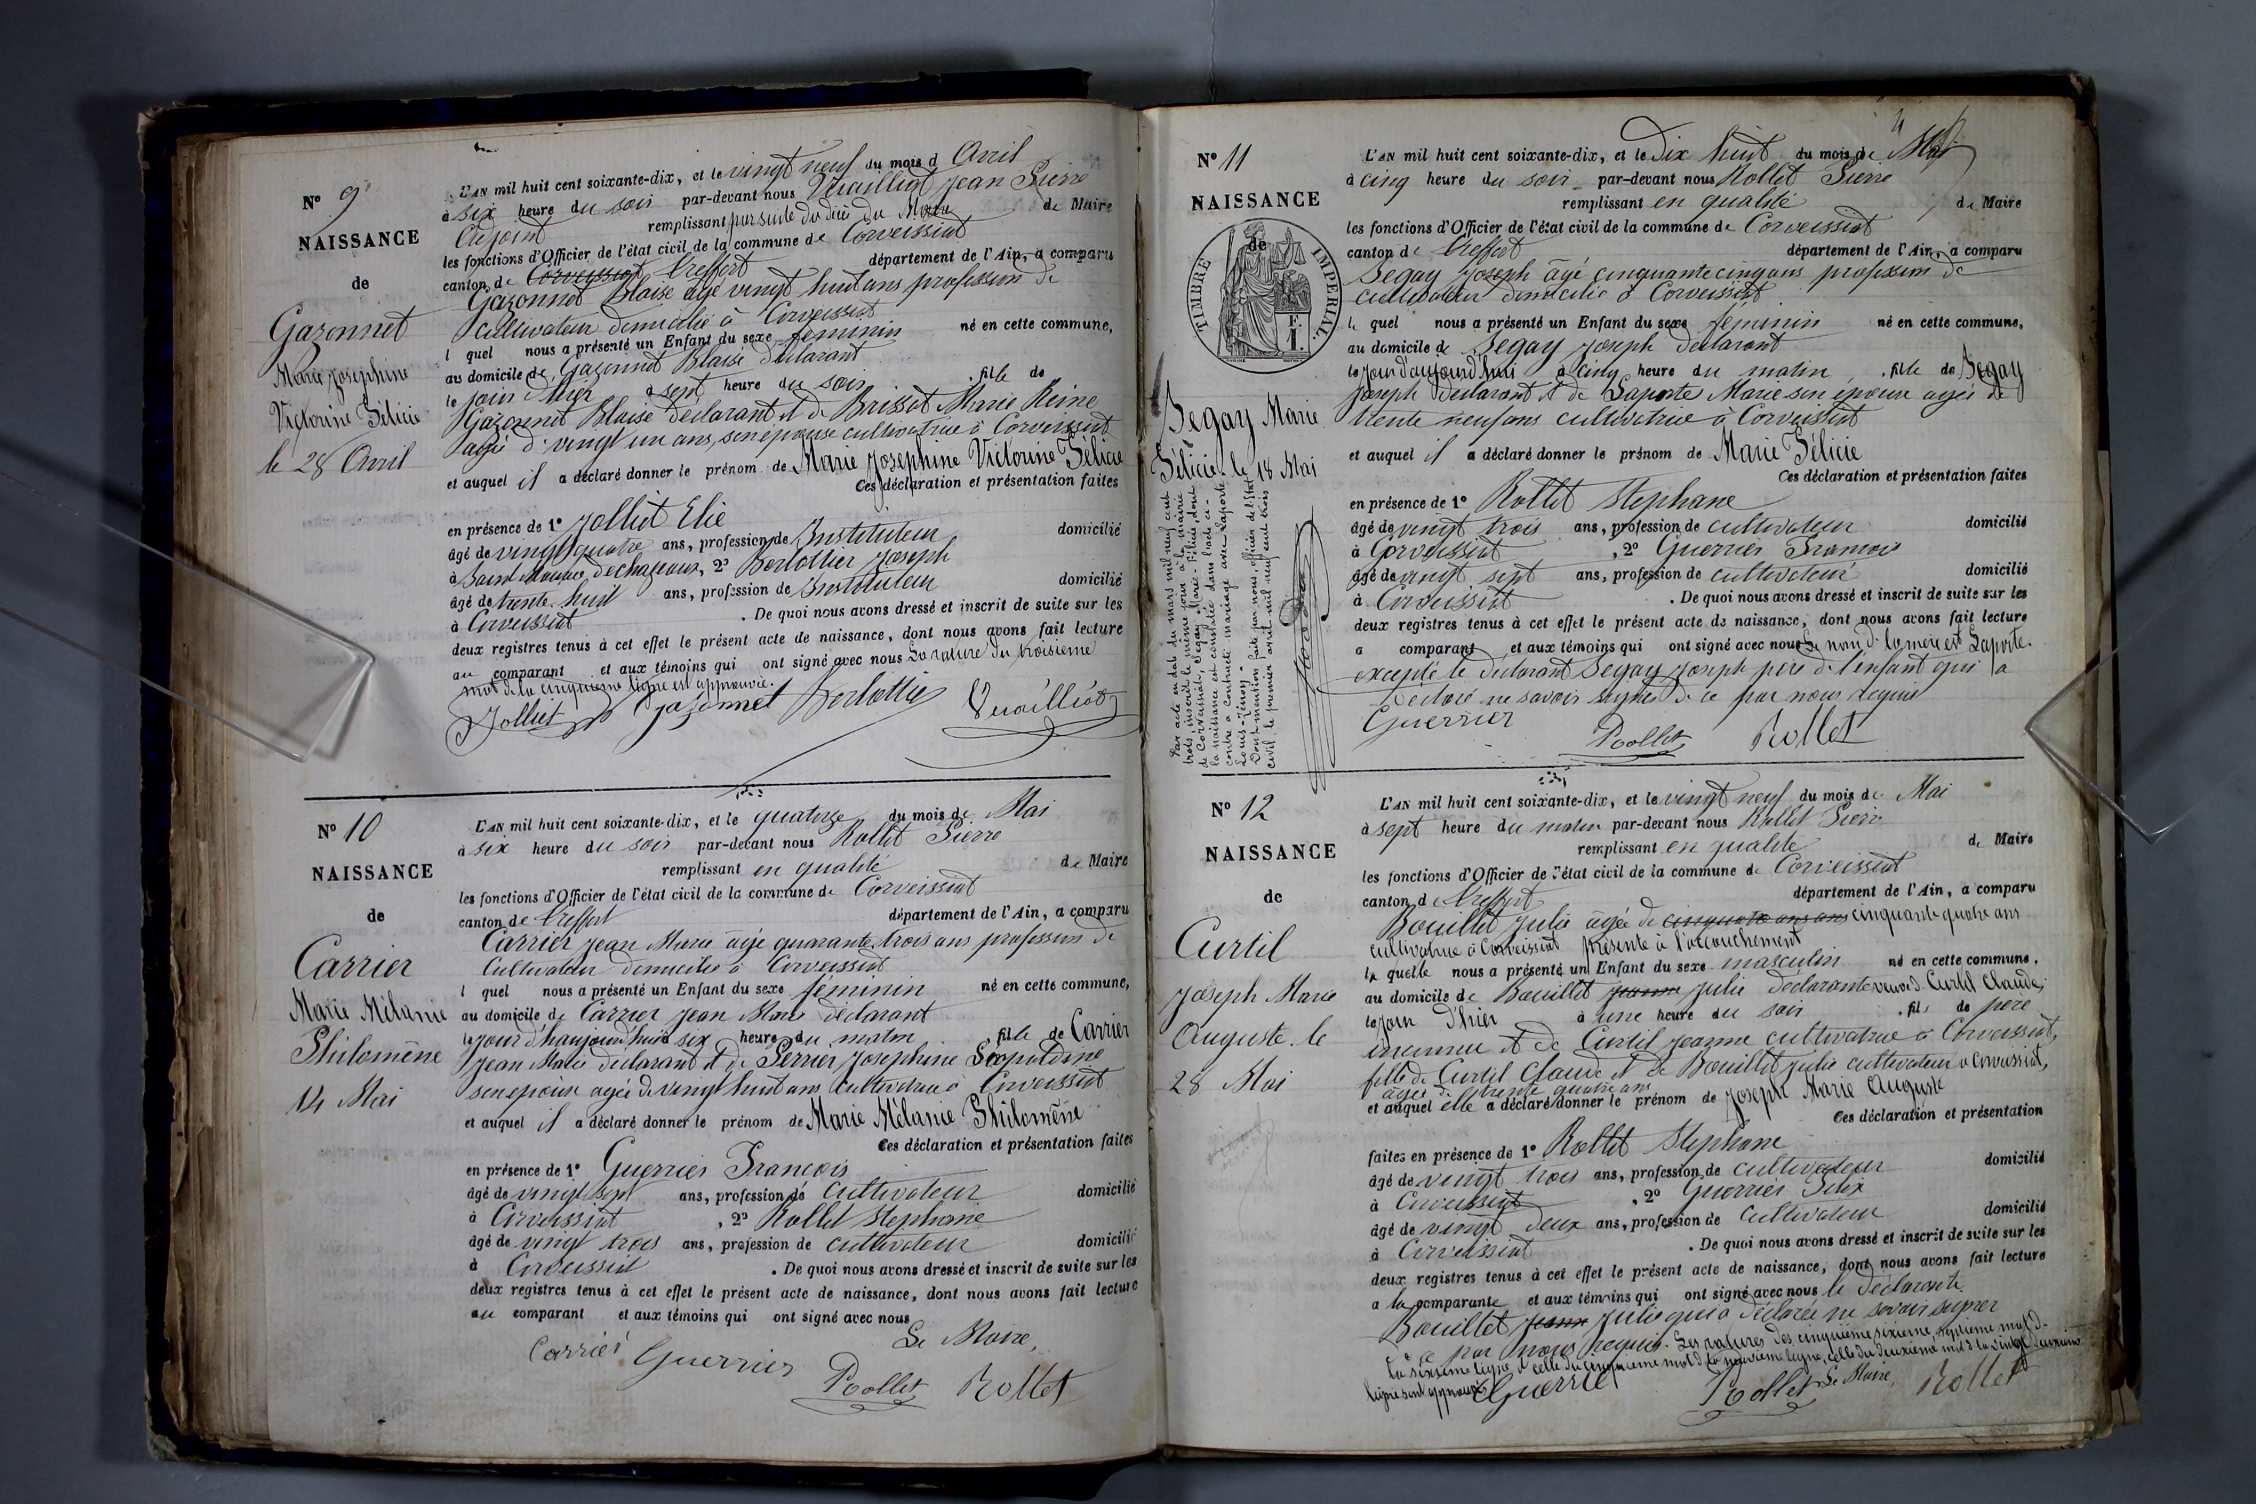 N° 9
NAISSANCE
de
Gazonnet
Marie Josephine
Victorine Félicie
le 28 Avril
L'AN mil huit cent soixante-dix, et le vingt neuf du mois d Avril
à six heure du soir par-devant nous Vuailliot Jean Pierre
adjoint remplissant par suite du décès du Maire de Maire
les fonctions d'Officier de l'état civil de la commune de Corveissiat
canton de Corveissiat Treffort département de l'Ain, a comparu
Gazonnet Blaise agé vingt huit ans profession de
cultivateur domicilié à Corveissiat
l quel nous a présenté un Enfant du sexe féminin né en cette commune,
au domicile de Gazonnet Blaise déclarant
le jour d'hier à sept heure du soir, fille de
Gazonnet Blaise déclarant et de Brisset Marie Reine
agée d. vingt un ans, son épouse cultivatrice à Corveissiat
et auquel il a déclaré donner le prénom de Marie Josephine Victorine Félicie
Ces déclaration et présentation faites
en présence de 1° Jolliet Elie
âgé de vingt quatre ans, profession de Instituteur domicilié
à Saint Maurice dechazeaux, 2° Berlottier Joseph
âgé de trente huit ans, profession de Instituteur domicilié
à Corveissiat . De quoi nous avons dressé et inscrit de suite sur les
deux registres tenus à cet effet le présent acte de naissance, dont nous avons fait lecture
au comparant et aux témoins qui ont signé avec nous La rature du troisieme
mot de la cinquieme ligne est approuvée.
Jolliet Gazonnet Berlottier Vuailliot
N° 10
NAISSANCE
de
Carrier
Marie Mélanie
Philomène
14 Mai
L'AN mil huit cent soixante-dix, et le quatorze du mois de Mai
à six heure du soir par-devant nous Rollet Pierre
remplissant en qualité de Maire
les fonctions d'Officier de l'état civil de la commune de Corveissiat
canton de Treffort département de l'Ain, a comparu
Carrier Jean Marie âgé quarante trois ans profession de
Cultivateur domicilié à Corveissiat
l quel nous a présenté un Enfant du sexe féminin né en cette commune,
au domicile de Carrier Jean Marie déclarant
le jour d'haujourd'hui à six heure du matin fille de Carrier
Jean Marie déclarant et de Perrier Josephine Léopoldine
son épouse agée de vingt huit ans Cultivatrice à Corveissiat
et auquel il a déclaré donner le prénom de Marie Mélanie Philomène
Ces déclaration et présentation faites
en présence de 1° Guerrier François
âgé de vingt sept ans, profession de cultivateur domicilié
à Corveissiat , 2° Rollet Stephane
âgé de vingt trois ans, profession de cultivateur domicilié
à Corveissiat . De quoi nous avons dressé et inscrit de suite sur les
deux registres tenus à cet effet le présent acte de naissance, dont nous avons fait lecture
au comparant et aux témoins qui ont signé avec nous
Le Maire,
Carrier Guerrier Rollet Rollet
N° 11
NAISSANCE
de
TIMBRE IMPERIAL.
F. 1.
Segay Marie
Félicie le 18 Mai
Par acte en date du mars mil neuf cent
trois, inscrit le même jour à la mairie
de Corveissiat, Segay Marie-Félicie, dont
la naissance est constatée dans l'acte ci-
contre a contracté mariage avec Laporte
Louis-Jénory.
Dont mention faite par nous, officier de l'état
civil, le premier avril mil neuf cent trois
L'AN mil huit cent soixante-dix, et le Dix huit du mois de Mai
à cinq heure du soir par-devant nous Rollet Pierre
remplissant en qualité de Maire
les fonctions d'Officier de l'état civil de la commune de Corveissiat
canton de Treffort département de l'Ain, a comparu
Segay Joseph âgé cinquante cinq ans profession de
cultivateur domicilié à Corveissiat
le quel nous a présenté un Enfant du sexe féminin né en cette commune,
au domicile de Segay Joseph déclarant
le jour d'aujourd'hui à cinq heure du matin, fille de Segay
Joseph déclarant et de Laporte Marie son épouse agée de
trente neuf ans cultivatrice à Corveissiat
et auquel il a déclaré donner le prénom de Marie Félicie
Ces déclaration et présentation faites
en présence de 1° Rollet Stephane
âgé de vingt trois ans, profession de cultivateur domicilié
à Corveissiat , 2° Guerrier François
âgé de vingt sept ans, profession de cultivateur domicilié
à Corveissiat . De quoi nous avons dressé et inscrit de suite sur les
deux registres tenus à cet effet le présent acte de naissance, dont nous avons fait lecture
a comparant et aux témoins qui ont signé avec nous Le nom de la mère est Laporte.
excepté le déclarant Segay Joseph père de l'enfant qui a
déclaré ne savoir signer de ce par nous requis
Guerrier Rollet Rollet
N° 12
NAISSANCE
de
Curtil
Joseph Marie
Auguste. le
28 Mai
L'AN mil huit cent soixante-dix, et le vingt neuf du mois de Mai
à sept heure du matin par-devant nous Rollet Pierre
remplissant en qualité de Maire
les fonctions d'Officier de l'état civil de la commune de Corveissiat
canton de Treffort département de l'Ain, a comparu
Bouillet Julie âgée de cinquante ans ans cinquante quatre ans
cultivatrice à Corveissiat présente à l'accouchement
la quelle nous a présenté un Enfant du sexe masculin né en cette commune,
au domicile de Bouillet Jeanne Julie déclarante veuve d. Curtil Claude,
le jour d'hier à une heure du soir . fils de père
inconnu et de Curtil Jeanne cultivatrice à Corveissiat,
fille de Curtil Claude et de Bouillet Julie cultivateur à Corveissiat,
agée de trente quatre ans
et auquel elle a déclaré donner le prénom de Joseph Marie Auguste
Ces déclaration et présentation
faites en présence de 1° Rollet Stephane
âgé de vingt trois ans, profession de cultivateur domicilié
à Corveissiat , 2° Guerrier Felix
âgé de vingt deux ans, profession de cultivateur domicilié
à Corveissiat . De quoi nous avons dressé et inscrit de suite sur les
deux registres tenus à cet effet le présent acte de naissance, dont nous avons fait lecture
a la comparante et aux témoins qui ont signé avec nous la déclarante
Bouillet Jeanne Julie qui a déclarée ne savoir signer
de ce par nous requis. Les ratures des cinquième sixieme, septieme mot d.
la sixieme ligne et celle du cinquieme mot d. la neuvieme ligne, celle du deuxieme mot d. la vingt deuxieme
ligne sont approuvés Guerrier Rollet Le Maire, Rollet